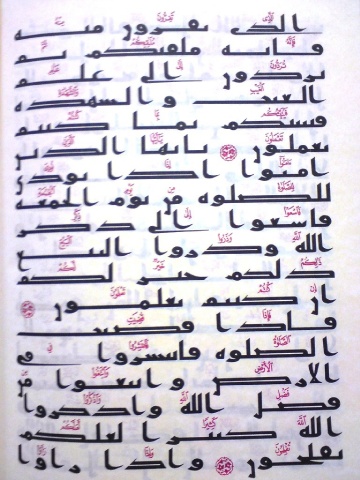 الذى تفرون منه
فانه ملقيكم ثم
تردون الى علم
الغيب والشهده
فينبئكم بما كنتم
تعملون يايها الذين
امنوا اذا نودى
للصلوه من يوم الجمعه
فاسعوا الى ذكر
الله وذروا البيع
ذلكم خير لكم
ان كنتم تعلمون
فاذا قضيت
الصلوه فانتشروا فى
الارض وابتغوا من
فضل الله واذكروا
الله كثيرا لعلكم
تفلحون واذا راوا